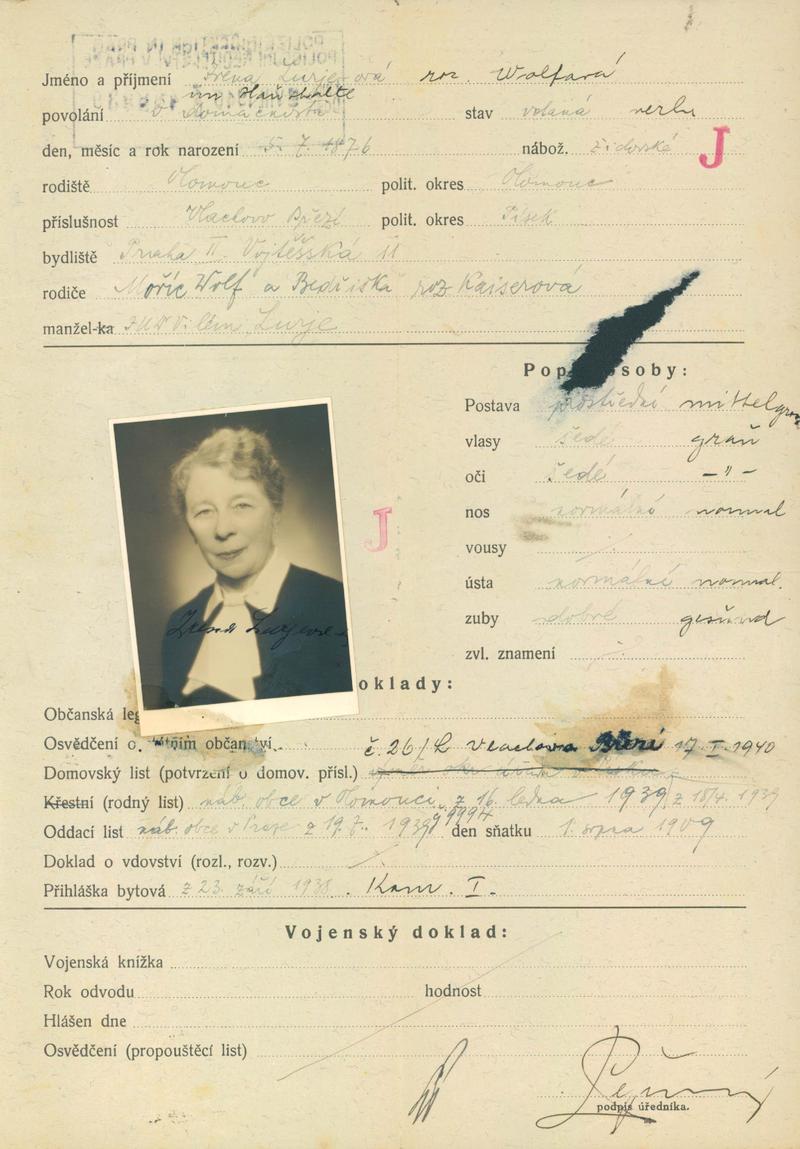 Jméno a příjmení Irena Lurjeová roz. Wolfová
im Haushalte
povolání v domácnosti stav vdaná verh.
den, měsíc a rok narození 5. 7. 1876 nábož. židovské J
rodiště Olomouc polit. okres Olomouc
příslušnost Vlachovo Březí polit. okres Písek
bydliště Praha II. Vojtěšská 11
rodiče Mořic Wolf a Bedřiška roz Kaiserová
manžel-ka JUDr Vilém Lurje
Pop soby:
Postava prostřední mittelgross
vlasy šedé grau
oči šedé – " –
nos normální normal
J
vousy
ústa normální normal.
zuby dobré gesund
zvl. znamení
Irena Lurjeová
oklady:
Občanská leg
Osvědčení o státním občanství č. 26/L Vlachovo Březí 17 I. 1940
Domovský list (potvrzení o domov. přísl.)
Křestní (rodný list) náb. obce v Olomouci, z 16. ledna 1939 z 18/4. 1939
Oddací list náb. obce v Praze z 19. 7. 1939 den sňatku 1. srpna 1909
Doklad o vdovství (rozl., rozv.)
Přihláška bytová z 23. září 1938. Kom. I.
Vojenský doklad:
Vojenská knížka
Rok odvodu hodnost
Hlášen dne
Osvědčení (propouštěcí list)
podpis úředníka.